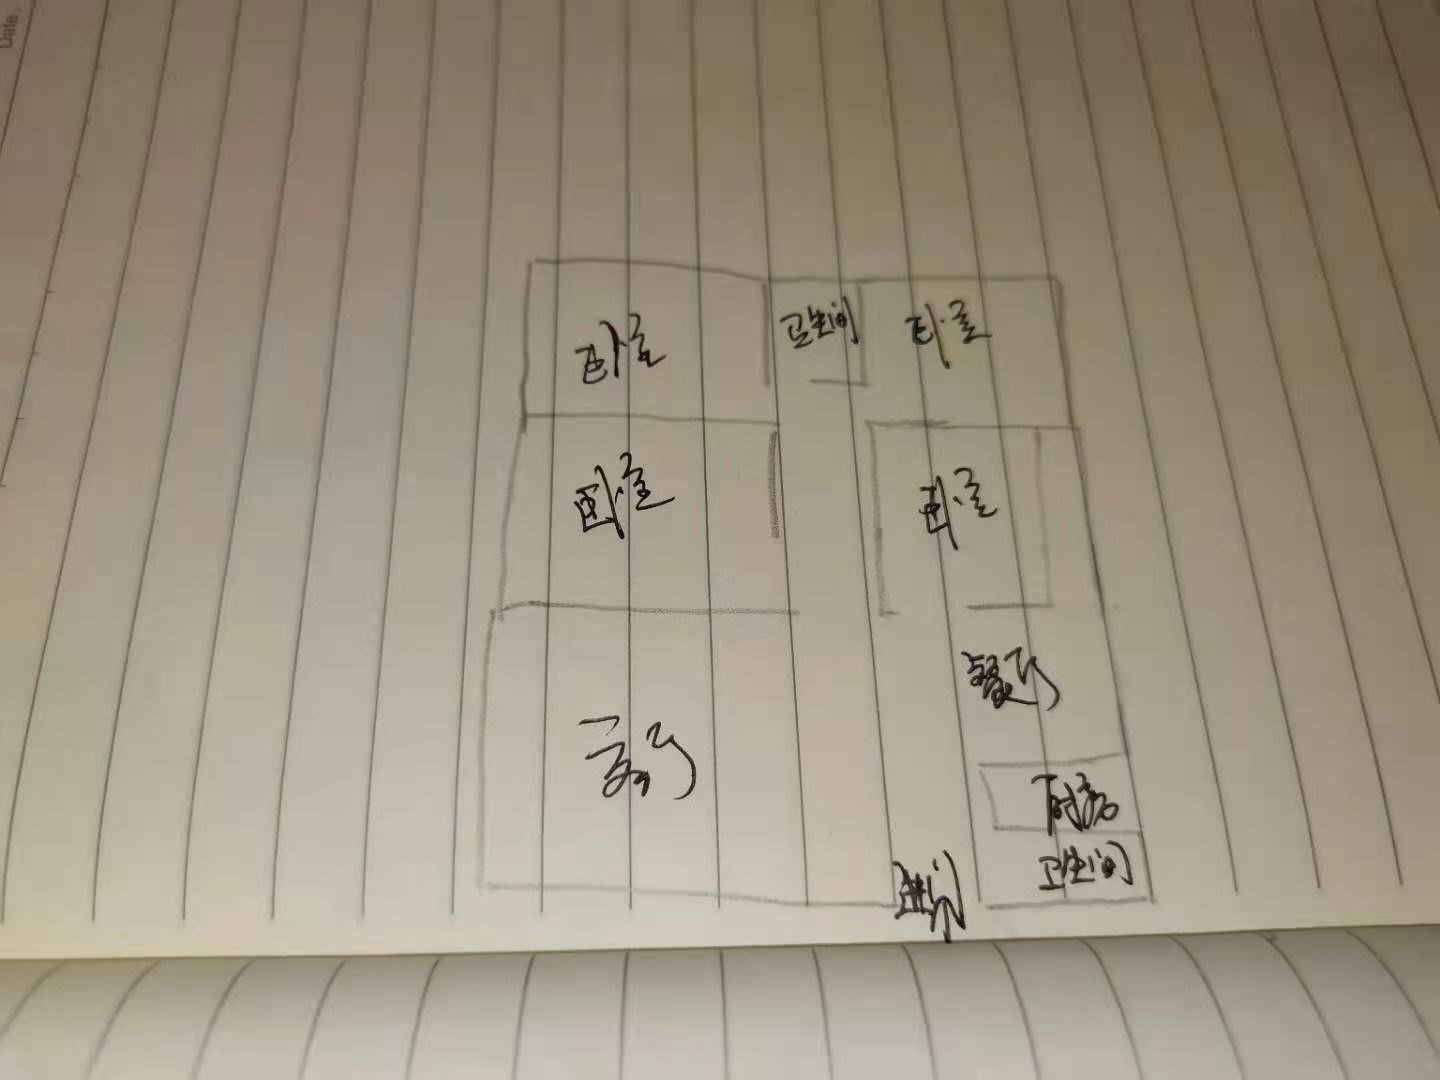 Date.
卧室 卫生间 卧室
卧室 卧室
餐厅
客厅
厨房
卫生间
进门